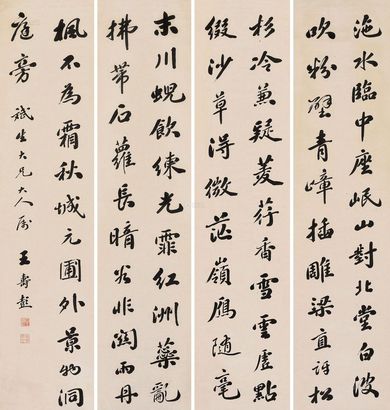 沱水臨中座岷山對北堂白波
吹粉壁青嶂插雕梁直訝松
杉冷兼疑菱荇香雪雲虛點
綴沙草得微茫嶺鴈随毫
末川蜺飲練光霏紅洲蘂亂
拂帶石蘿長暗谷非關雨丹
楓不為霜秋城元圃外景物洞
庭旁 斌生大兄大人屬 王壽彭